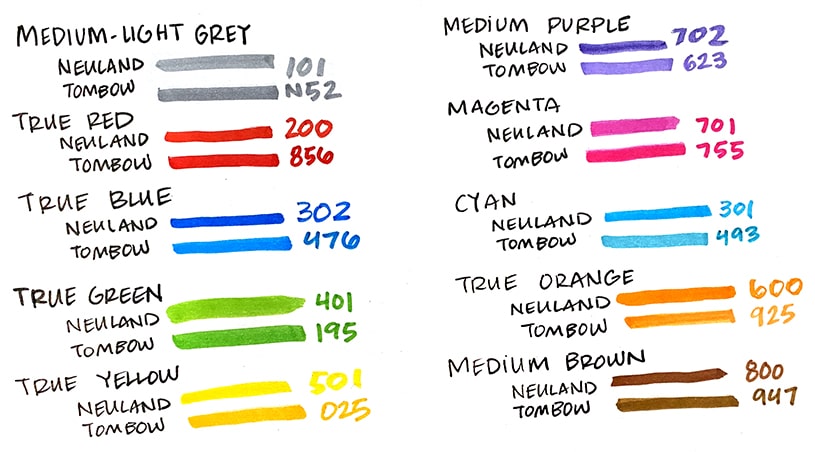 MEDIUM-LIGHT GREY
NEULAND 101
TOMBOW N52
TRUE RED
NEULAND 200
TOMBOW 856
TRUE BLUE
NEULAND 302
TOMBOW 476
TRUE GREEN
NEULAND 401
TOMBOW 195
TRUE YELLOW
NEULAND 501
TOMBOW 025
MEDIUM PURPLE
NEULAND 702
TOMBOW 623
MAGENTA
NEULAND 701
TOMBOW 755
CYAN
NEULAND 301
TOMBOW 493
TRUE ORANGE
NEULAND 600
TOMBOW 925
MEDIUM BROWN
NEULAND 800
TOMBOW 947